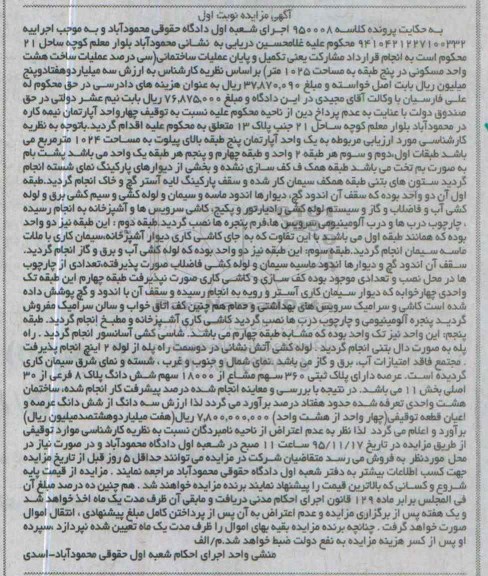 آگهی مزایده نوبت اول
به حکایت پرونده کلاسه ۹۵۰۰۰۸ اجرای شعبه اول دادگاه حقوقی محمودآباد و به موجب اجراییه
۹۴۱۰۴۲۱۲۲۷۱۰۰۳۳۲ محکوم علیه غلامحسین دریایی به نشانی محمودآباد بلوار معلم کوچه ساحل ۲۱
محکوم است به انجام قرارداد مشارکت یعنی تکمیل و پایان عملیات ساختمانی(سی درصد عملیات ساخت هشت
واحد مسکونی در پنج طبقه به مساحت ۱۰۲۵ متر) بر اساس نظریه کارشناس به ارزش سه میلیاردوهفتادوپنج
میلیون ریال بابت اصل خواسته و مبلغ ۳۷٫۸۷۰٫۰۹۰ ریال به عنوان هزینه های دادرسی در حق محکوم له
علی فارسیان با وکالت آقای مجیدی در این دادگاه و مبلغ ۷۶٫۸۷۵٫۰۰۰ ریال بابت نیم عشر دولتی در حق
صندوق دولت با عنایت به عدم پرداخ دین از ناحیه محکوم علیه نسبت به توقیف چهارواحد آپارتمان نیمه کاره
در محمودآباد بلوار معلم کوچه ساحل ۲۱ جنب پلاک ۱۳ متعلق به محکوم علیه اقدام گردید.باتوجه به نظریه
کارشناسی مورد ارزیابی مربوطه به یک واحد آپارتمان پنج طبقه بالای پیلوت به مساحت ۱۰۲۴ مترمربع می
باشد طبقات اول،دوم و سوم هر طبقه ۲ واحد و طبقه چهارم و پنجم هر طبقه یک واحد می باشد پشت بام
به صورت بم تخت می باشد طبقه همک ف کف سازی نشده و بخشی از دیوارهای پارکینگ نمای شسته انجام
گردید ستون های بتنی طبقه همکف سیمان کار شده و سقف پارکینگ لایه آستر گچ و خاک انجام گردید.طبقه
اول آن دو واحد بوده که سقف آن اندود گچ، دیوارها اندود ماسه و سیمان و لوله کشی و سیم کشی برق و لوله
کشی آب و فاضلاب و گاز و سیستم لوله کشی رادیاتور و پکیج، کاشی سرویس ها و آشپزخانه به انجام رسیده
، چارچوب درب ها و درب آلومینیومی سرویس ها،فرم پنجره ها نصب گردید.طبقه دوم : این طبقه نیز دو واحد
بوده که همانند طبقه اول می باشد با این تفاوت که به جای کاشی کاری دیوار آشپزخانه،سیمان کاری با ملات
ماسه سیمان انجام گردید.طبقه سوم: این طبقه نیز دو واحد بوده که لوله کشی آب و برق و گاز انجام گردید.
سقف آن اندود گچ و دیوارها اندود ماسه سیمان و لوله کشی فاضلاب صورت پذیرفته.تعدادی از چارچوب
ها در محل نصب و تعدادی موجود بوده کف سازی و کاشی کاری صورت نپذیرفت طبقه چهارم این طبقه تک
واحدی چهارخوابه که دیوار سیمان کاری آستر و رویه به انجام رسیده و سقف آن با اندود و گچ پوشش داده
شده است کاشی و سرامیک سرویس های بهداشتی و حمام هم چنین کف اتاق خواب و سالن سرامیک مفروش
گردید پنجره آلومینیومی و چارچوب درب ها نصب گردید کاشی کاری آشپزخانه و مطبخ انجام گردید. طبقه
پنجم: این واحد نیز تک واحد بوده که مشابه طبقه چهارم می باشد. شاسی کشی آسانسور انجام گردید . راه
پله به صورت دال بتنی انجام گردید . لوله کشی آتش نشانی در دوسمت راه پله از لوله ۲ اینچ انجام پذیرفت
. مجتمع فاقد امتیازات آب، برق و گاز می باشد نمای شمال و جنوب و غرب ، شسته و نمای شرق سیمان کاری
گردیده است. عرصه دارای پلاک ثبتی ۳۶۰ سهم مشاع از ۱۸۰۰۰ سهم شش دانگ پلاک ۸ فرعی از ۳۰
اصلی بخش ۱۱ می باشد. در نتیجه با بررسی و معاینه انجام شده درصد پیشرفت کار انجام شده، ساختمان
هشت واحدی تعرفه شده حدود هفتاد درصد برآورد می گردد لذا ارزش سه دانگ از شش دانگ عرصه و
اعیان قطعه توقیفی(چهار واحد از هشت واحد) ۷٫۸۰۰٫۰۰۰٫۰۰۰ ریال(هفت میلیاردوهشتصدمیلیون ریال)
برآورد و اعلام می گردد لذا نظر به عدم اعتراض از ناحیه نامبردگان نسبت به نظریه کارشناسی موارد توقیفی
از طریق مزایده در تاریخ ۹۵/۱۱/۱۷ ساعت ۱۱ صبح در شعبه اول دادگاه محمودآباد و در صورت نیاز در
محل موردنظر به فروش می رسد متقاضیان شرکت در مزایده می توانند حداقل ۵ روز قبل از تاریخ مزایده
جهت کسب اطلاعات بیشتر به دفتر شعبه اول دادگاه حقوقی محمودآباد مراجعه نمایند . مزایده از قیمت پایه
شروع و کسانی که بالاترین قیمت را پیشنهاد نمایند برنده مزایده خواهند شد . هم چنین ده درصد مبلغ آن
فی المجلس برابر ماده ۱۲۹ قانون اجرای احکام مدنی دریافت و مابقی آن ظرف مدت یک ماه اخذ خواهد شد
و یک هفته پس از برگزاری مزایده و عدم اعتراض به آن پس از پرداختن کامل مبلغ پیشنهادی ، انتقال اموال
صورت خواهد گرفت . چنانچه برنده مزایده بقیه بهای اموال را ظرف مدت یک ماه تعیین شده نپردازد ،سپرده
او پس از کسر هزینه مزایده به نفع دولت ضبط خواهد شد.م/الف
منشی واحد اجرای احکام شعبه اول حقوقی محمودآباد-اسدی